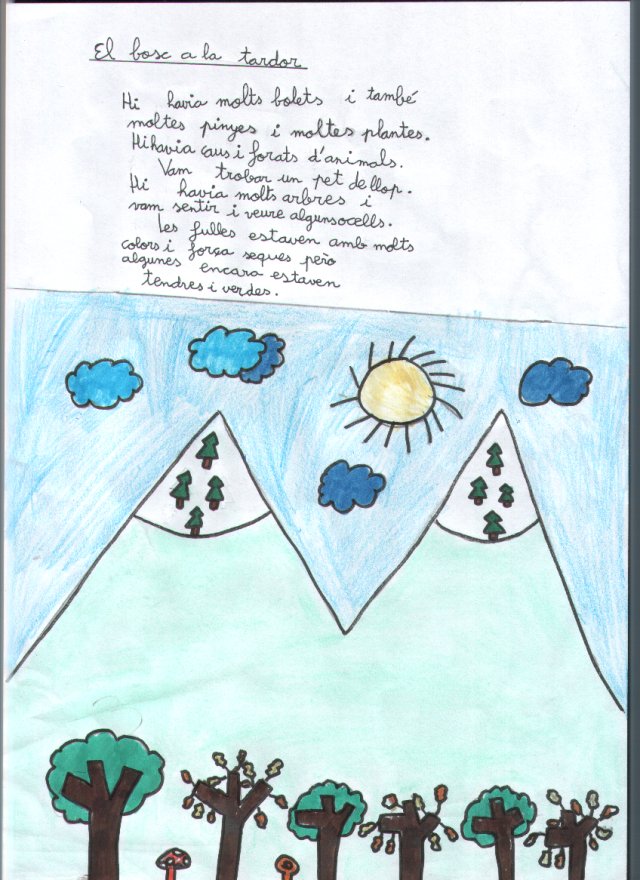 El bosc a la tardor
Hi havia molts bolets i també
moltes pinyes i moltes plantes.
Hi havia caus i forats d'animals.
Vam trobar un pet de llop.
Hi havia molts arbres i
vam sentir i veure alguns ocells.
Les fulles estaven amb molts
colors i força seques però
algunes encara estaven
tendres i verdes.